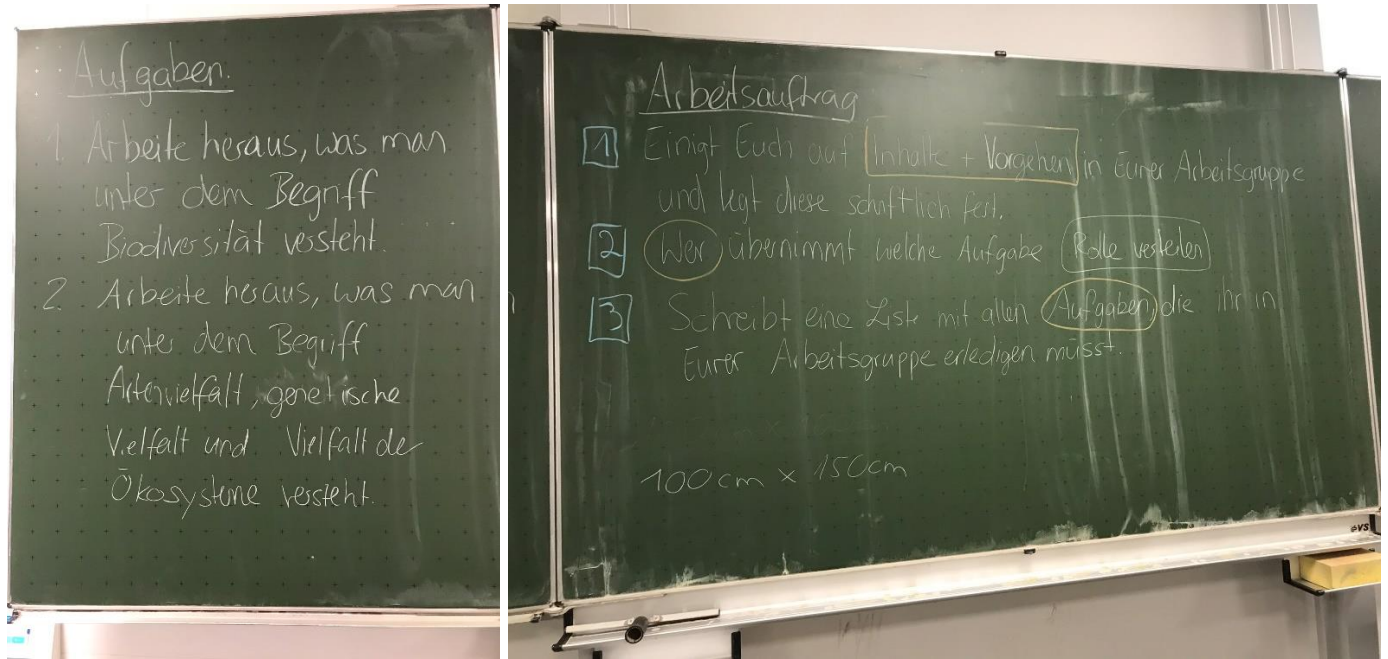 Aufgaben.
1. Arbeite heraus, was man
unter dem Begriff
Biodiversität versteht.
2. Arbeite heraus, was man
unter dem Begriff
Artenvielfalt, genetische
Vielfalt und Vielfalt der
Ökosysteme versteht.
Arbeitsauftrag
1 Einigt Euch auf Inhalte + Vorgehen in Eurer Arbeitsgruppe
und legt diese schriftlich fest.
2 Wer übernimmt welche Aufgabe Rolle verteilen
3 Schreibt eine Liste mit allen Aufgaben, die ihr in
Eurer Arbeitsgruppe erledigen müsst.
100cm x 150cm
VS